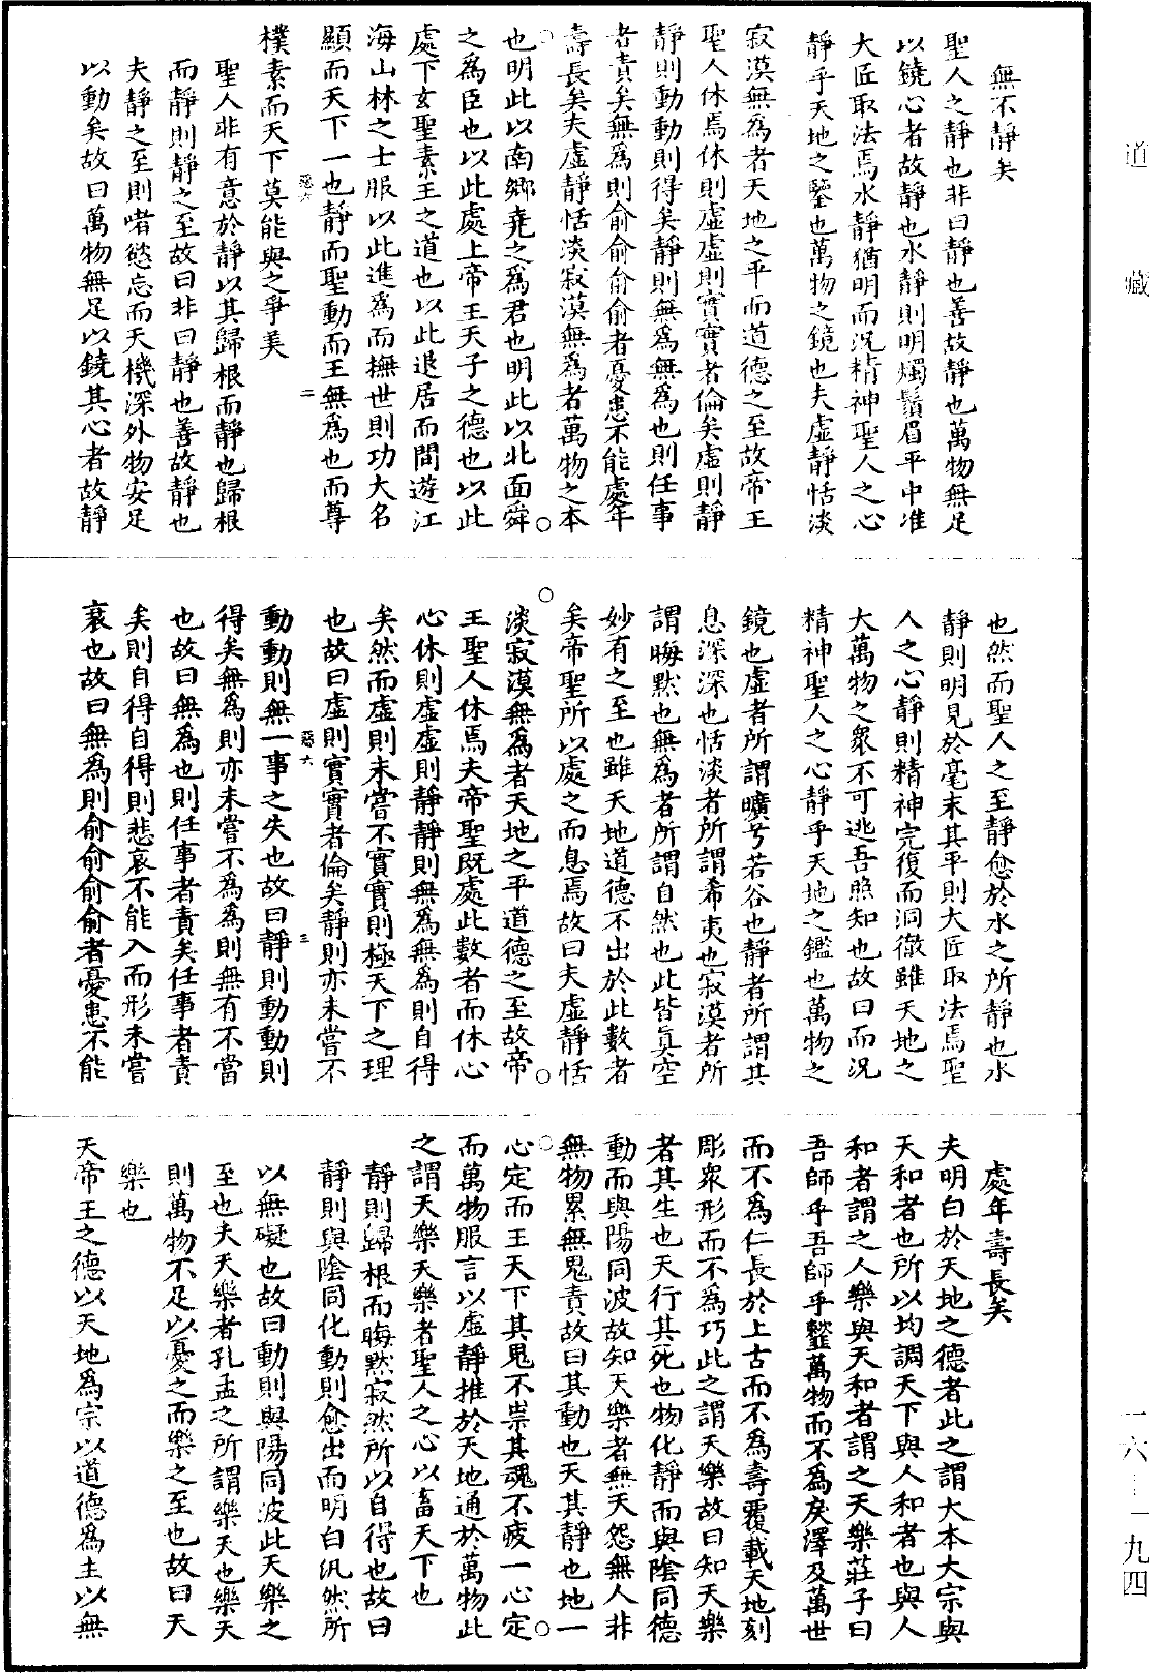 無不靜矣
聖人之靜也非曰靜也善故靜也萬物無足
以鐃心者故靜也水靜則明燭鬚眉平中准
大匠取法焉水靜猶明而況精神聖人之心
靜乎天地之鑒也萬物之鏡也夫虛靜恬淡
寂漠無為者天地之平而道德之至故帝王
聖人休焉休則虛虛則實實者倫矣虛則靜
靜則動動則得矣靜則無為無為也則任事
者責矣無為則俞俞俞俞者憂患不能處年
壽長矣夫虛靜恬淡寂漠無為者萬物之本
也明此以南鄉堯之為君也明此以北面舜
之為臣也以此處上帝王天子之德也以此
處下玄聖素王之道也以此退居而閒遊江
海山林之士服以此進為而撫世則功大名
顯而天下一也靜而聖動而王無為也而尊
惡六 二
樸素而天下莫能與之爭美
聖人非有意於靜以其歸根而靜也歸根
而靜則靜之至故曰非曰靜也善故靜也
夫靜之至則嗜慾忘而天機深外物安足
以動矣故曰萬物無足以鐃其心者故靜
也然而聖人之至靜愈於水之所靜也水
靜則明見於毫末其平則大匠取法焉聖
人之心靜則精神完復而洞徹雖天地之
大萬物之衆不可逃吾照知也故曰而況
精神聖人之心靜乎天地之鑑也萬物之
鏡也虛者所謂曠兮若谷也靜者所謂其
息深深也恬淡者所謂希夷也寂漠者所
謂晦默也無為者所謂自然也此皆真空
妙有之至也雖天地道德不出於此數者
矣帝聖所以處之而息焉故曰夫虛靜恬
淡寂漠無為者天地之平道德之至故帝
王聖人休焉夫帝聖既處此數者而休心
心休則虛虛則靜靜則無為無為則自得
矣然而虛則未嘗不實實則極天下之理
也故曰虛則實實者倫矣靜則亦未嘗不
惡六 三
動動則無一事之失也故曰靜則動動則
得矣無為則亦未嘗不為為則無有不當
也故曰無為也則任事者責矣任事者責
矣則自得自得則悲哀不能入而形未嘗
衰也故曰無為則俞俞俞俞者憂患不能
處年壽長矣
夫明白於天地之德者此之謂大本大宗與
天和者也所以均調天下與人和者也與人
和者謂之人樂與天和者謂之天樂莊子曰
吾師乎吾師乎䪠萬物而不為戾澤及萬世
而不為仁長於上古而不為壽覆載天地刻
彫衆形而不為巧此之謂天樂故曰知天樂
者其生也天行其死也物化靜而與陰同德
動而與陽同波故知天樂者無天怨無人非
無物累無鬼責故曰其動也天其靜也地一
心定而王天下其鬼不祟其魂不疲一心定
而萬物服言以虛靜推於天地通於萬物此
之謂天樂天樂者聖人之心以畜天下也
靜則歸根而晦默寂然所以自得也故曰
靜則與陰同化動則愈出而明白汎然所
以無礙也故曰動則與陽同波此天樂之
至也夫天樂者孔孟之所謂樂天也樂天
則萬物不足以憂之而樂之至也故曰天
樂也
天帝王之德以天地為宗以道德為主以無
道藏
一六—一九四